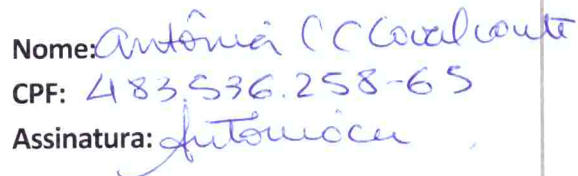 Nome: Antônia C C Cavalcante
CPF: 483.536.258-65
Assinatura: Antonia